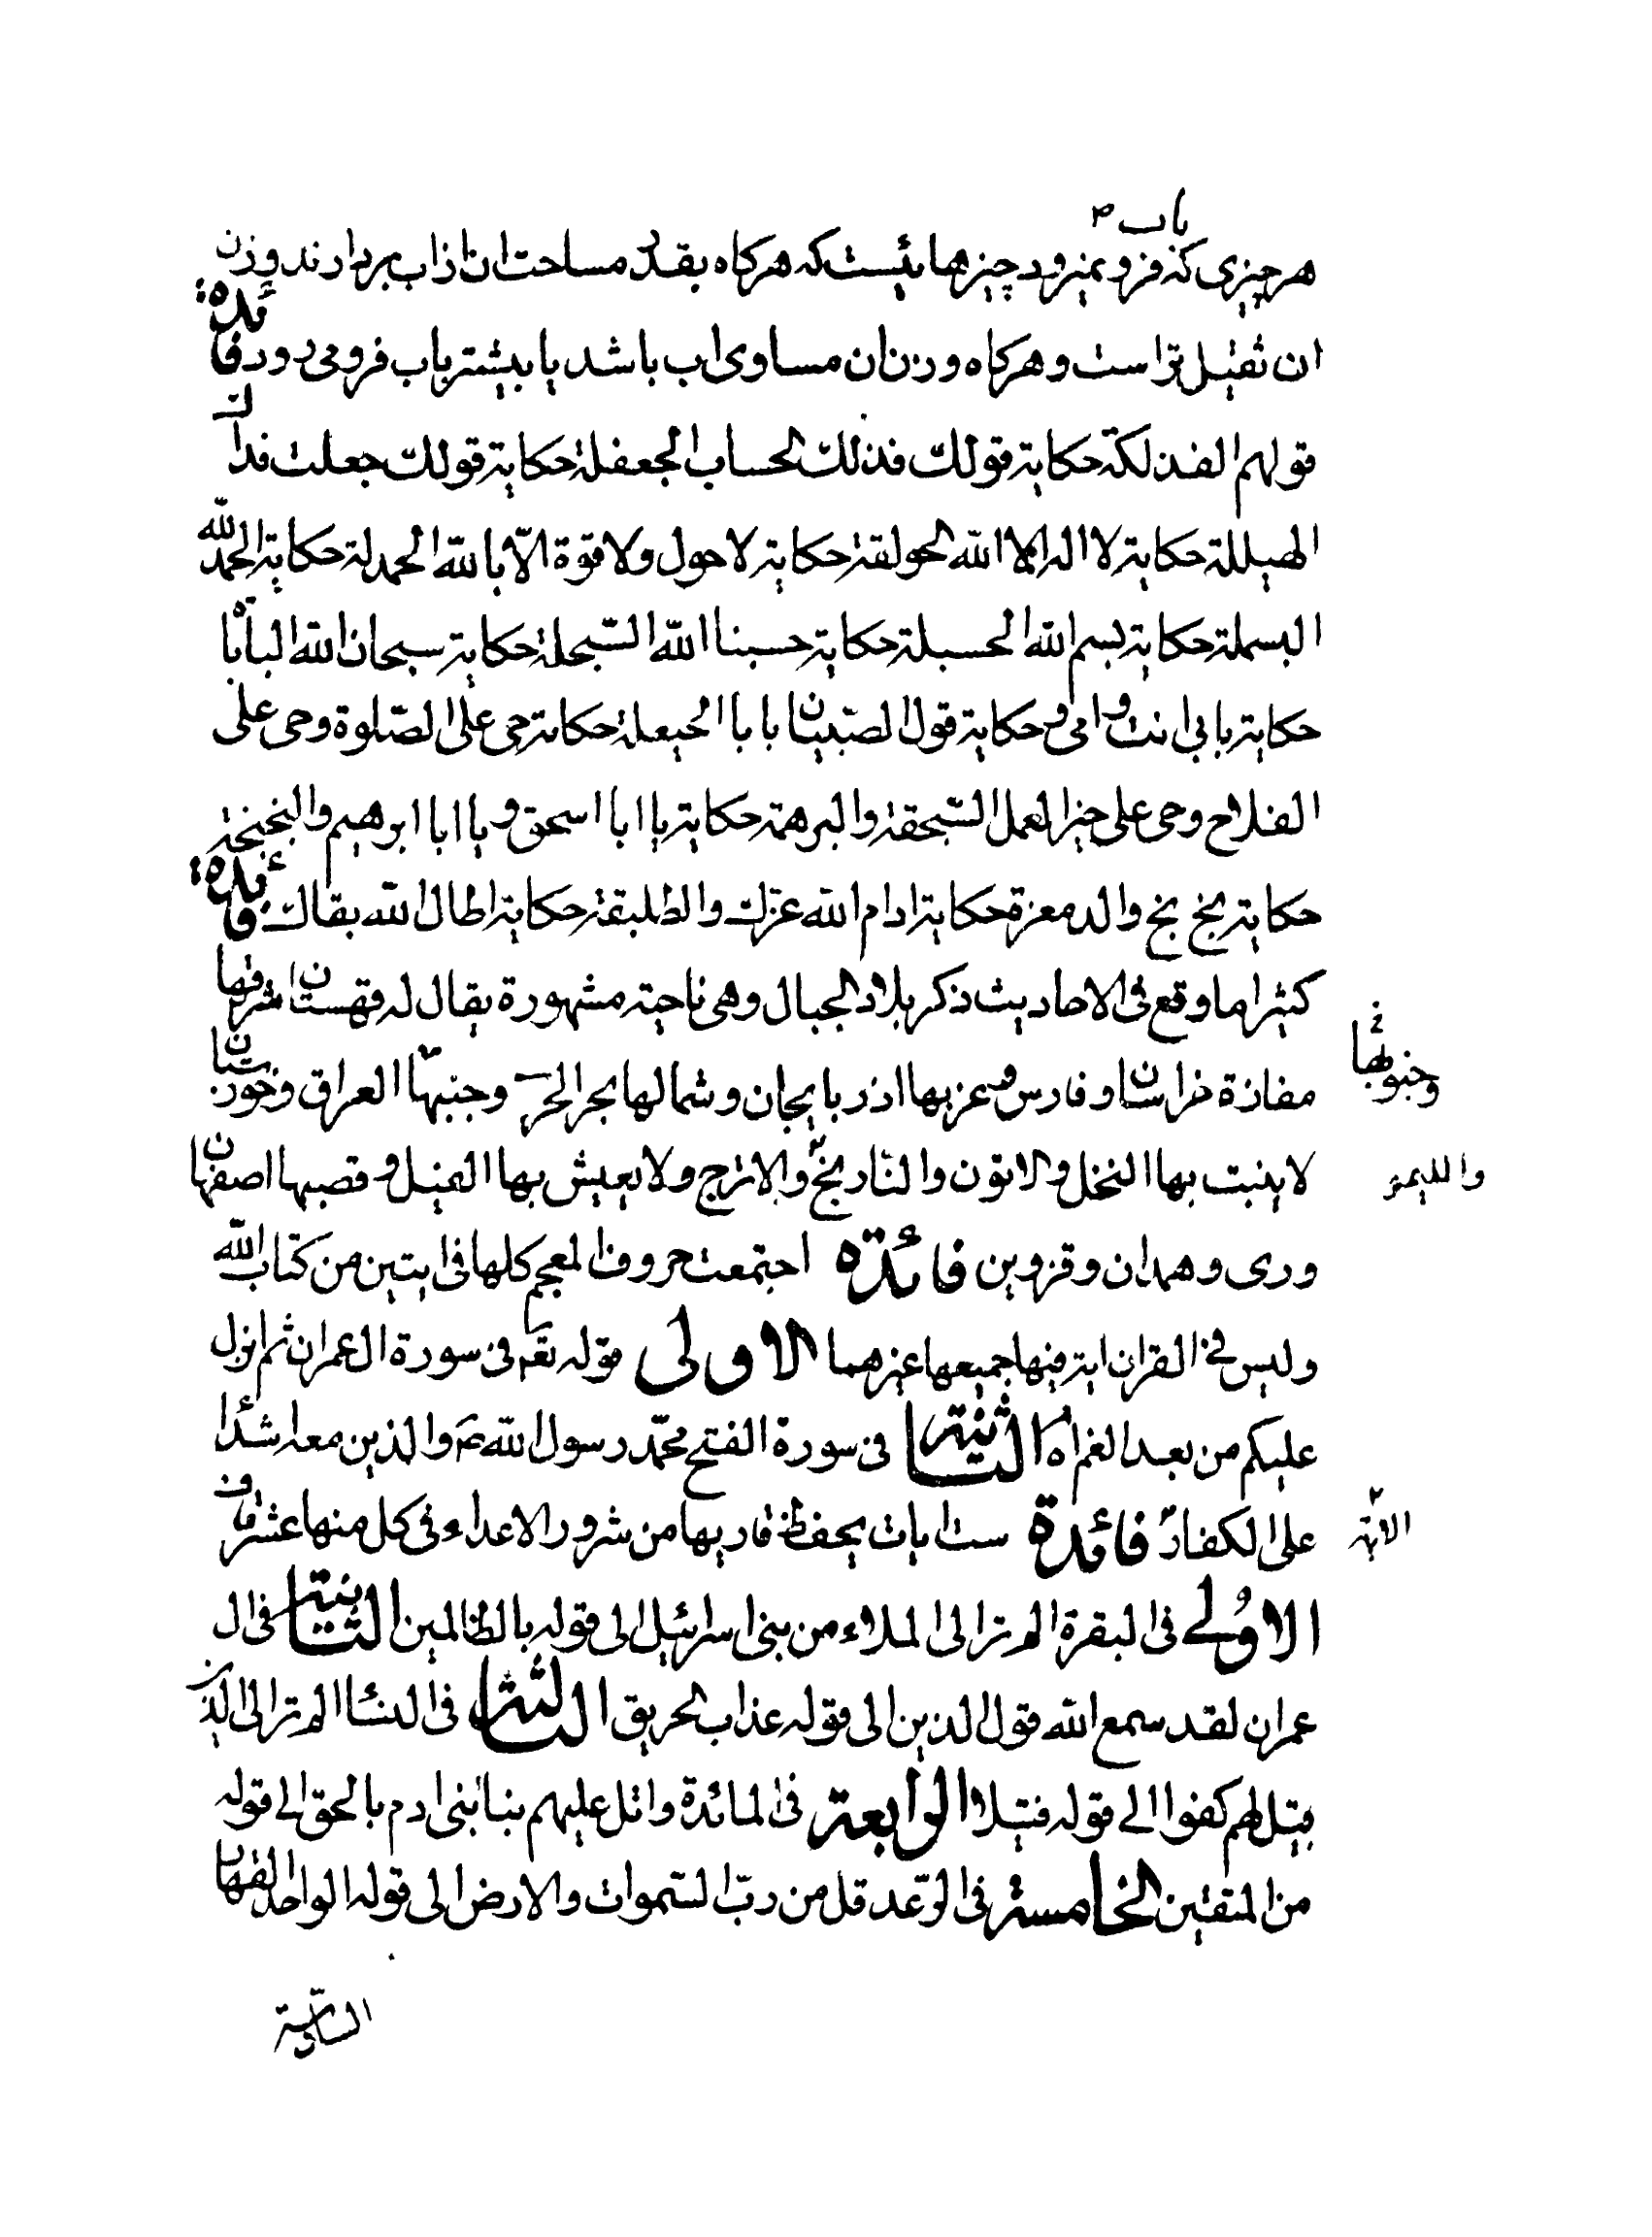 باب ص
هر چیزی که فرو نمیرود چیزهائیست که هرکاه بقدر مساحت ان از اب بردارند وزن
ان ثقیل تر است و هرکاه وزن ان مساوی اب باشد یا بیشتر باب فرو می رود فائدة
قولهم الفذلكة حكاية قولك فذلك الحساب الجعفلة حكاية قولك جعلت فداك
الهيللة حكاية لا اله الا الله الحولقة حكاية لا حول ولا قوة الّا بالله الحمدلة حكاية الحمد لله
البسملة حكاية بسم الله الحسبلة حكاية حسبنا الله السّبحلة حكاية سبحان الله البابأة
حكاية بابي انت وامي و حكاية قول الصّبيان بابا الحيعلة حكاية حي على الصّلوة وحي على
الفلاح وحي على خير العمل السّبحقة والبرهمة حكاية يا ابا اسحق ويا ابا ابرهيم والبخبخة
حكاية بخ بخ والدمعزة حكاية ادام الله عزك والطلبقة حكاية اطال الله بقاك فائدة
كثيرا ما وقع في الاحاديث ذكر بلاد الجبال وهي ناحية مشهورة يقال له قهستان شرقها
مفازة خراسان و فارس و غربها اذربايجان وشمالها بحر الخزر وجنبها العراق وخوزستان
وجنوبها
لا ينبت بها النخل و الزيتون والنّارنج والاترج ولا يعيش بها الفيل و قصبها اصفهان
والليمو
وری وهمدان وقزوين فائدة اجتمعت حروف المعجم كلها في ايتين من كتاب الله
وليس في القران اية فيها جميعها غيرهما الاولى قوله تعم في سورة ال عمران ثم انزل
عليكم من بعد الغم اه الثانية في سورة الفتح محمّد رسول الله ص والذين معه اشداء
على الكفار فائدة ست ايات يحفظ قاريها من شرور الاعداء في كل منها عشر قاف
الاية
الاولى في البقرة الم تر الى الملاء من بني اسرائيل الى قوله بالظالمين الثانية في ال
عمران لقد سمع الله قول الذين الى قوله عذاب الحريق الثالثة في النساء الم تر الى الذين
قيل لهم كفوا الى قوله فتيلا الرابعة في المائدة واتل عليهم نبا ابني ادم بالحق الى قوله
من المتقين الخامسة في الرّعد قل من ربّ السّموات والارض الى قوله الواحد القهار
السادسة